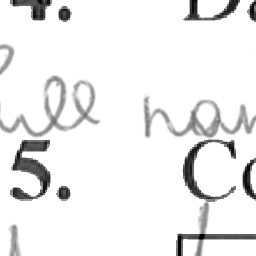 4. Da
full nam
5. Co